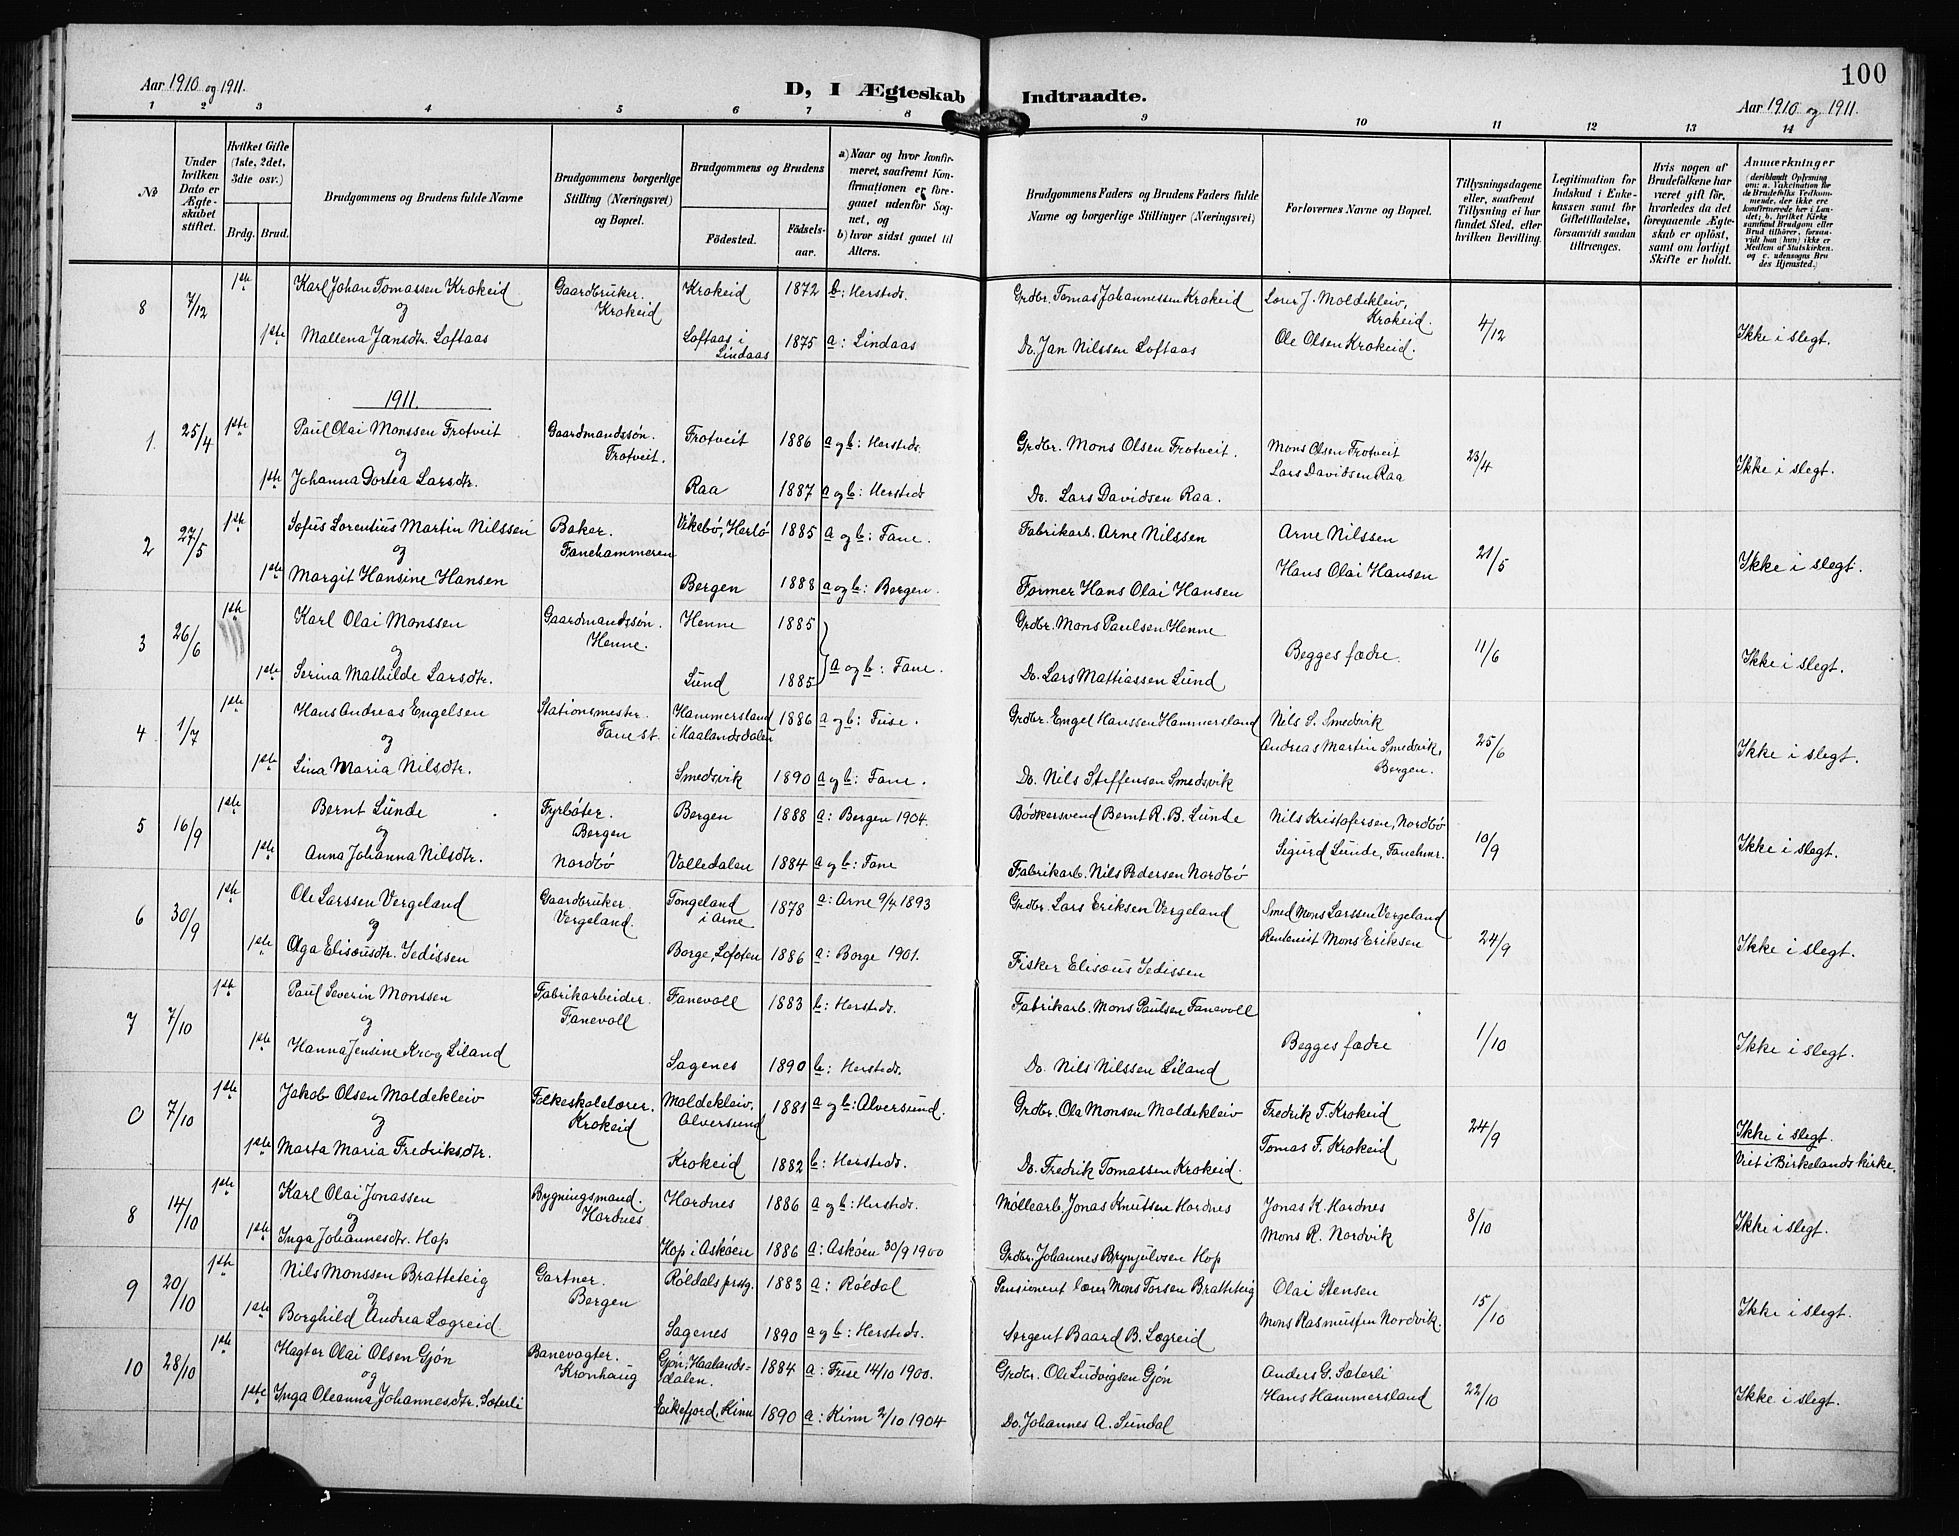 100
Aar 1910 og 1911.
D, I Ægteskab Indtraadte.
Aar 1910 og 1911.
1 2 3 4 5 6 7 8 9 10 11 12 13 14
No
Under hvilken Dato er Ægteskabet stiftet.
Hvilket Gifte (1ste, 2det, 3die osv.)
Brdg. Brud.
Brudgommens og Brudens fulde Navne
Brudgommens borgerlige Stilling (Næringsvei) og Bopæl.
Brudgommens og Brudens
Fødested. Fødselsaar.
a) Naar og hvor konfirmeret, saafremt Konfirmationen er foregaaet udenfor Sognet, og
b) hvor sidst gaaet til Alters.
Brudgommens Faders og Brudens Faders fulde Navne og borgerlige Stillinger (Næringsvei)
Forlovernes Navne og Bopæl.
Tillysningsdagene eller, saafremt Tillysning ei har fundet Sted, efter hvilken Bevilling.
Legitimation for Indskud i Enkekassen samt for Giftetilladelse, forsaavidt saadan tiltrænges.
Hvis nogen af Brudefolkene har været gift før, hvorledes da det foregaaende Ægteskab er opløst, samt om lovligt Skifte er holdt.
Anmærkninger (deriblandt Oplysning om: a. Vakcination for de Brudefolks Vedkommende, der ikke ere konfirmerede her i Landet; b. hvilket Kirkesamfund Brudgom eller Brud tilhører, forsaavidt han (hun) ikke er Medlem af Statskirken, og c. udensogns Brudes Hjemsted.)
8 7/12 1ste Karl Johan Tomassen Krokeid Gaardbruker. Krokeid Krokeid 1872 b: Hersteds. Grdbr. Tomas Johannessen Krokeid Lærer J. Moldekleiv, Krokeid. 4/12 Ikke i slegt.
og
1ste Mallena Jansdtr. Loftaas Loftaas i Lindaas 1875 a: Lindaas Do. Jan Nilssen Loftaas Ole Olsen Krokeid.
1911.
1. 25/4 1ste Paul Olai Monssen Frotveit Gaardmandssøn. Frotveit. Frotveit 1886 a og b: Hersteds. Grdbr. Mons Olsen Frotveit. Mons Olsen Frotveit 23/4 Ikke i slegt.
og
1ste Johanna Dortea Larsdtr. Raa 1887 a og b: Hersteds Do. Lars Davidsen Raa. Lars Davidsen Raa
2 27/5 1ste Sofus Lorentius Martin Nilssen Baker. Fanehammeren Vikebø, Herlø 1885 a og b: Fane. Fabrikarb. Arne Nilssen Arne Nilssen 21/5 Ikke i slegt.
og
1ste Margit Hansine Hansen Bergen 1888 a og b: Bergen. Former Hans Olai Hansen Hans Olai Hansen
3 26/6 1ste Karl Olai Monssen Gaardmandssøn. Henne. Henne 1885 a og b: Fane. Grdbr. Mons Paulsen Henne Begges fædre. 11/6 Ikke i slegt.
og
1ste Serina Mathilde Larsdtr. Lund 1885 Do. Lars Mattiassen Lund
4 1/7 1ste Hans Andreas Engelsen Stationsmester. Fane st. Hammersland i Haalandsdalen 1886 a og b: Fuse. Grdbr. Engel Hanssen Hammersland Nils S. Smedsvik 25/6 Ikke i slegt.
og
1ste Lina Maria Nilsdtr. Smedsvik 1890 a og b: Fane. Do. Nils Steffensen Smedsvik Andreas Martin Smedsvik, Bergen.
5 16/9 1ste Bernt Lunde Fyrbøter. Bergen Bergen 1888 a: Bergen 1904. Bødkersvend Bernt R. B. Lunde Nils Kristofersen, Nordbø 10/9 Ikke i slegt.
og
1ste Anna Johanna Nilsdtr. Nordbø Valledalen 1884 a og b: Fane Fabrikarb. Nils Pedersen Nordbø Sigurd Lunde, Fanehmr.
6 30/9 1ste Ole Larssen Vergeland Gaardbruker. Vergeland. Tongeland i Arne 1878 a: Arne 9/4 1893 Grdbr. Lars Eriksen Vergeland Smed Mons Larssen Vergeland 24/9 Ikke i slegt.
og
1ste Olga Elisæusdtr. Jedissen Borge, Lofoten 1886 a: Borge 1901. Fisker Elisæus Jedissen Rentenist Mons Eriksen
7 7/10 1ste Paul Severin Monssen Fabrikarbeider. Fanevoll Fanevoll 1883 b: Hersteds. Fabrikarb. Mons Paulsen Fanevoll Begges fædre 1/10 Ikke i slegt.
og
1ste Hanna Jensine Krog Liland Sagenes 1890 b: Hersteds. Do. Nils Nilssen Liland
0 7/10 1ste Jakob Olsen Moldekleiv Folkeskolelærer. Krokeid Moldekleiv, Alversund 1881 a og b: Alversund. Grdbr. Ola Monsen Moldekleiv Fredrik T. Krokeid 24/9 Ikke i slegt.
og
1ste Marta Maria Fredriksdtr. Krokeid 1882 b: Hersteds. Do. Fredrik Tomassen Krokeid. Tomas F. Krokeid Viet i Birkelands kirke.
8 14/10 1ste Karl Olai Jonassen Bygningsmand. Hordnes Hordnes 1886 a og b: Hersteds. Møllearb. Jonas Knutsen Hordnes Jonas K. Hordnes 8/10 Ikke i slegt.
og
1ste Inga Johannesdtr. Hop Hop i Askøen 1886 a: Askøen 30/9 1900 Grdbr. Johannes Brynjulvsen Hop Mons R. Nordvik
9 20/10 1ste Nils Monssen Bratteteig Gartner. Bergen Røldals prstg. 1883 a: Røldal Pensioneret lærer Mons Torsen Bratteteig Olai Stensen 15/10 Ikke i slegt.
og
1ste Borghild Andrea Lægreid. Sagenes 1890 a og b: Hersteds. Sergent Baard B. Lægreid Mons Rasmussen Nordvik.
10 28/10 1ste Hagtor Olai Olsen Gjøn Banevogter. Kronhaug Gjøn, Haalandsdalen. 1884 a: Fuse 14/10 1900. Grdbr. Ole Ludvigsen Gjøn Anders G. Sæterli 22/10 Ikke i slegt.
og
1ste Inga Oleanna Johannesdtr. Sæterli Eikefjord, Kinn 1890 a: Kinn 2/10 1904 Do. Johannes A. Sundal Hans Hammersland